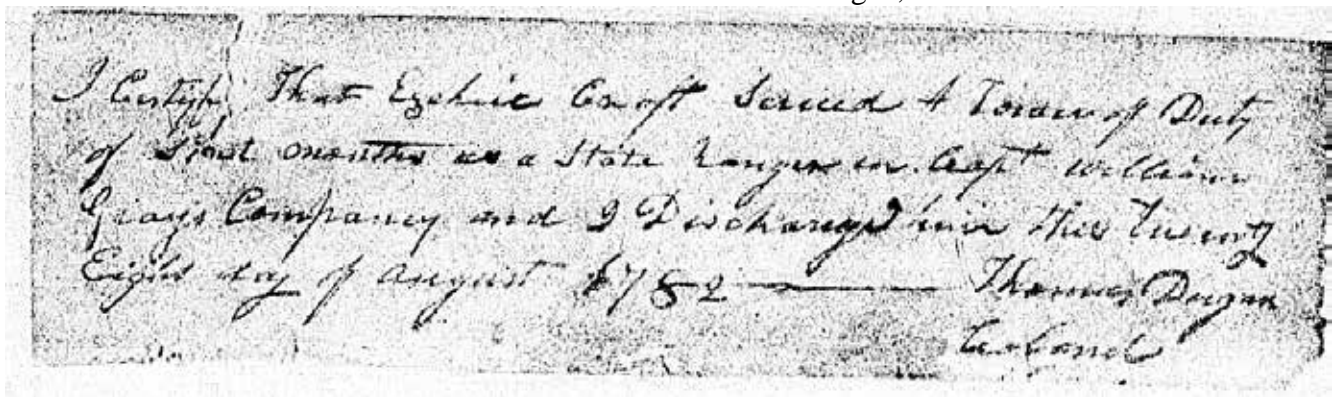 I Certify That Ezekiel Croft Served A Tower of Duty
of months as a State Ranger in Capt William
Grays Company and I Discharge him this Twenty
Eight day of August 1782 — Thomas Dugan
Colonel